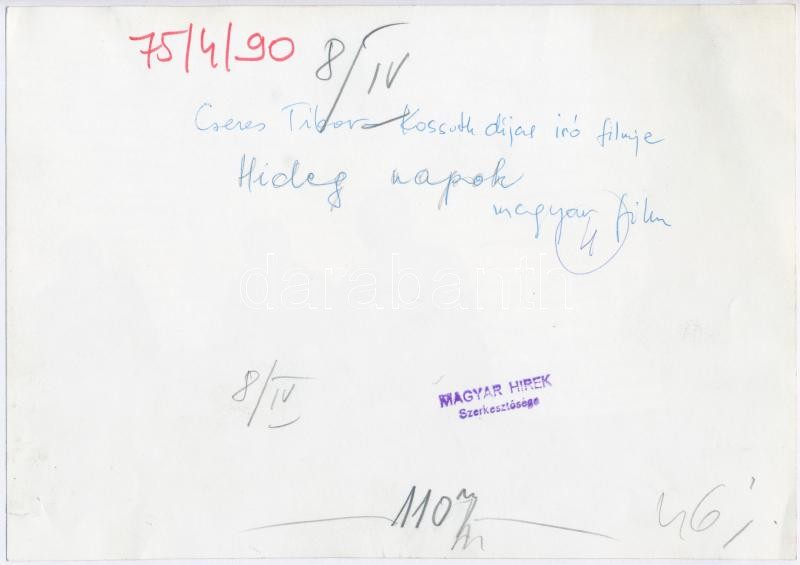 75/4/90
8/IV
Cseres Tibor Kossuth díjas író filmje
Hideg napok
magyar film
4
darabanth
8/IV
MAGYAR HIREK
Szerkesztősége
110
46